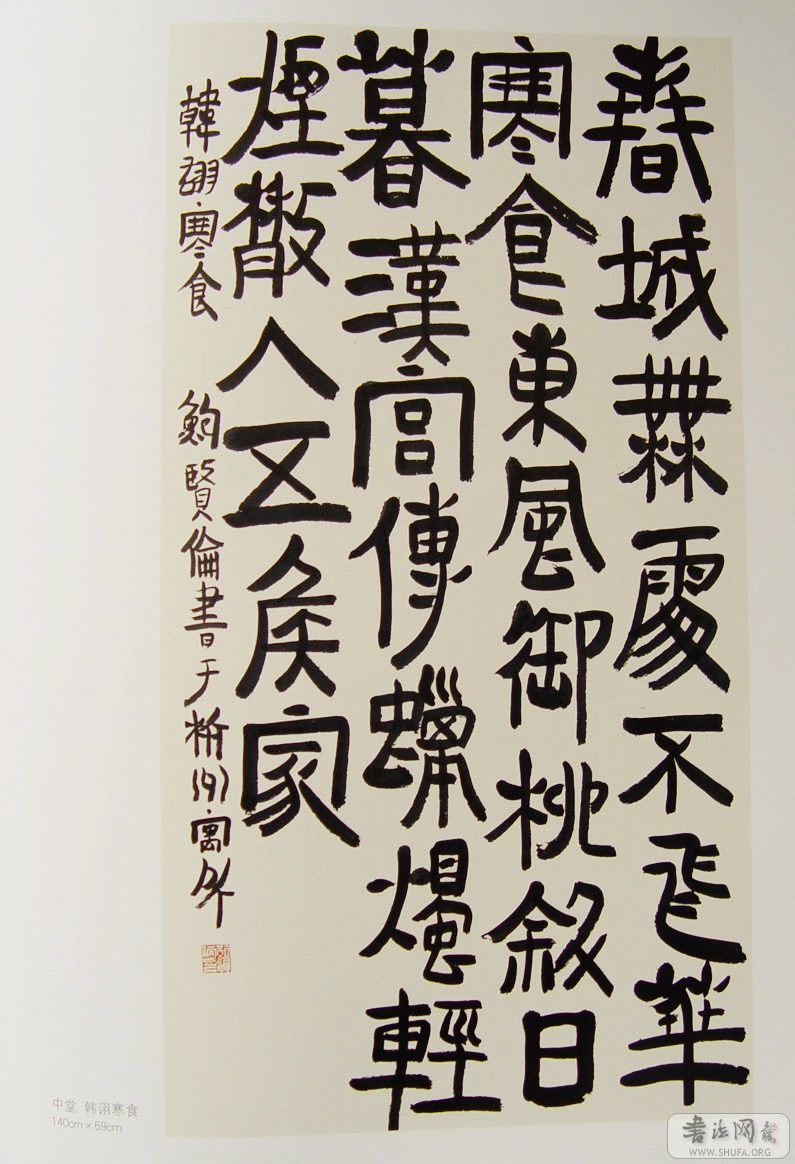 春城無處不飛華
寒食東風御柳斜日
暮漢宮傳蠟燭輕
煙散入五侯家
韓翃寒食 鮑賢倫書于州寓
中堂 韩诩寒食
140cm×69cm
書法网
WWW.SHUFA.ORG